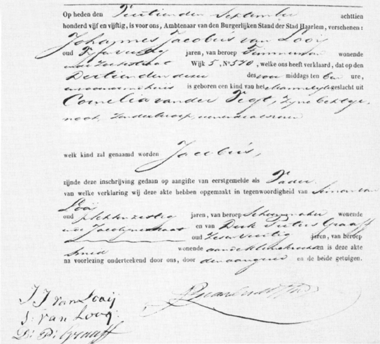 Op heden den Veertienden September achttien
honderd vijf en vijftig, is voor ons, Ambtenaar van den Burgerlijken Stand der Stad Haarlem, verschenen:
Johannes Jacobus van Looij
oud jaren, van beroep Timmerman wonende
Wijk 5. № 570, welke ons heeft verklaard, dat op den
Dertienden dezer des voor middags ten ure,
is geboren een kind van het mannelijk geslacht uit
Cornelia van der Vegt, zijne echtge-
noot, zonder beroep,
welk kind zal genaamd worden Jacobus,
zijnde deze inschrijving gedaan op aangifte van eerstgemelde als Vader
van welke verklaring wij deze akte hebben opgemaakt in tegenwoordigheid van Simon van
Looij
oud jaren, van beroep Schoenmaker wonende
en van Dirk Pieter Graaff
oud jaren, van beroep
wonende is deze akte
na voorlezing onderteekend door ons, door den aangever en de beide getuigen.
J J van Looij
S. van Looij
D: P: Graaff